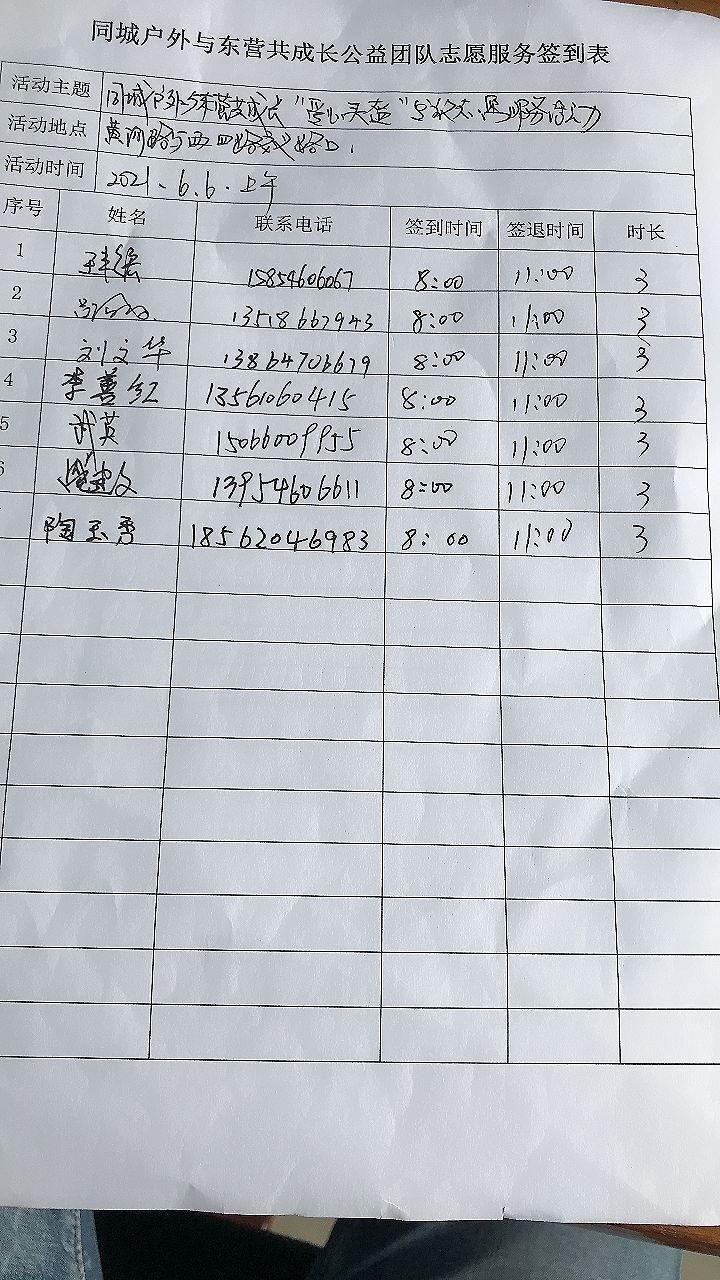 同城户外与东营共成长公益团队志愿服务签到表
活动主题 同城户外与东营共成长
活动地点 黄河路与西四路交叉路口.
活动时间 2021.6.6.上午
序号 姓名 联系电话 签到时间 签退时间 时长
1 15854606067 8:00 11:00 3
2 13518667943 8:00 11:00 3
3 刘文华 13864706679 8:00 11:00 3
4 李善红 13561060415 8:00 11:00 3
5 武英 15066009955 8:00 11:00 3
6 13954606611 8:00 11:00 3
陶玉秀 18562046983 8:00 11:00 3